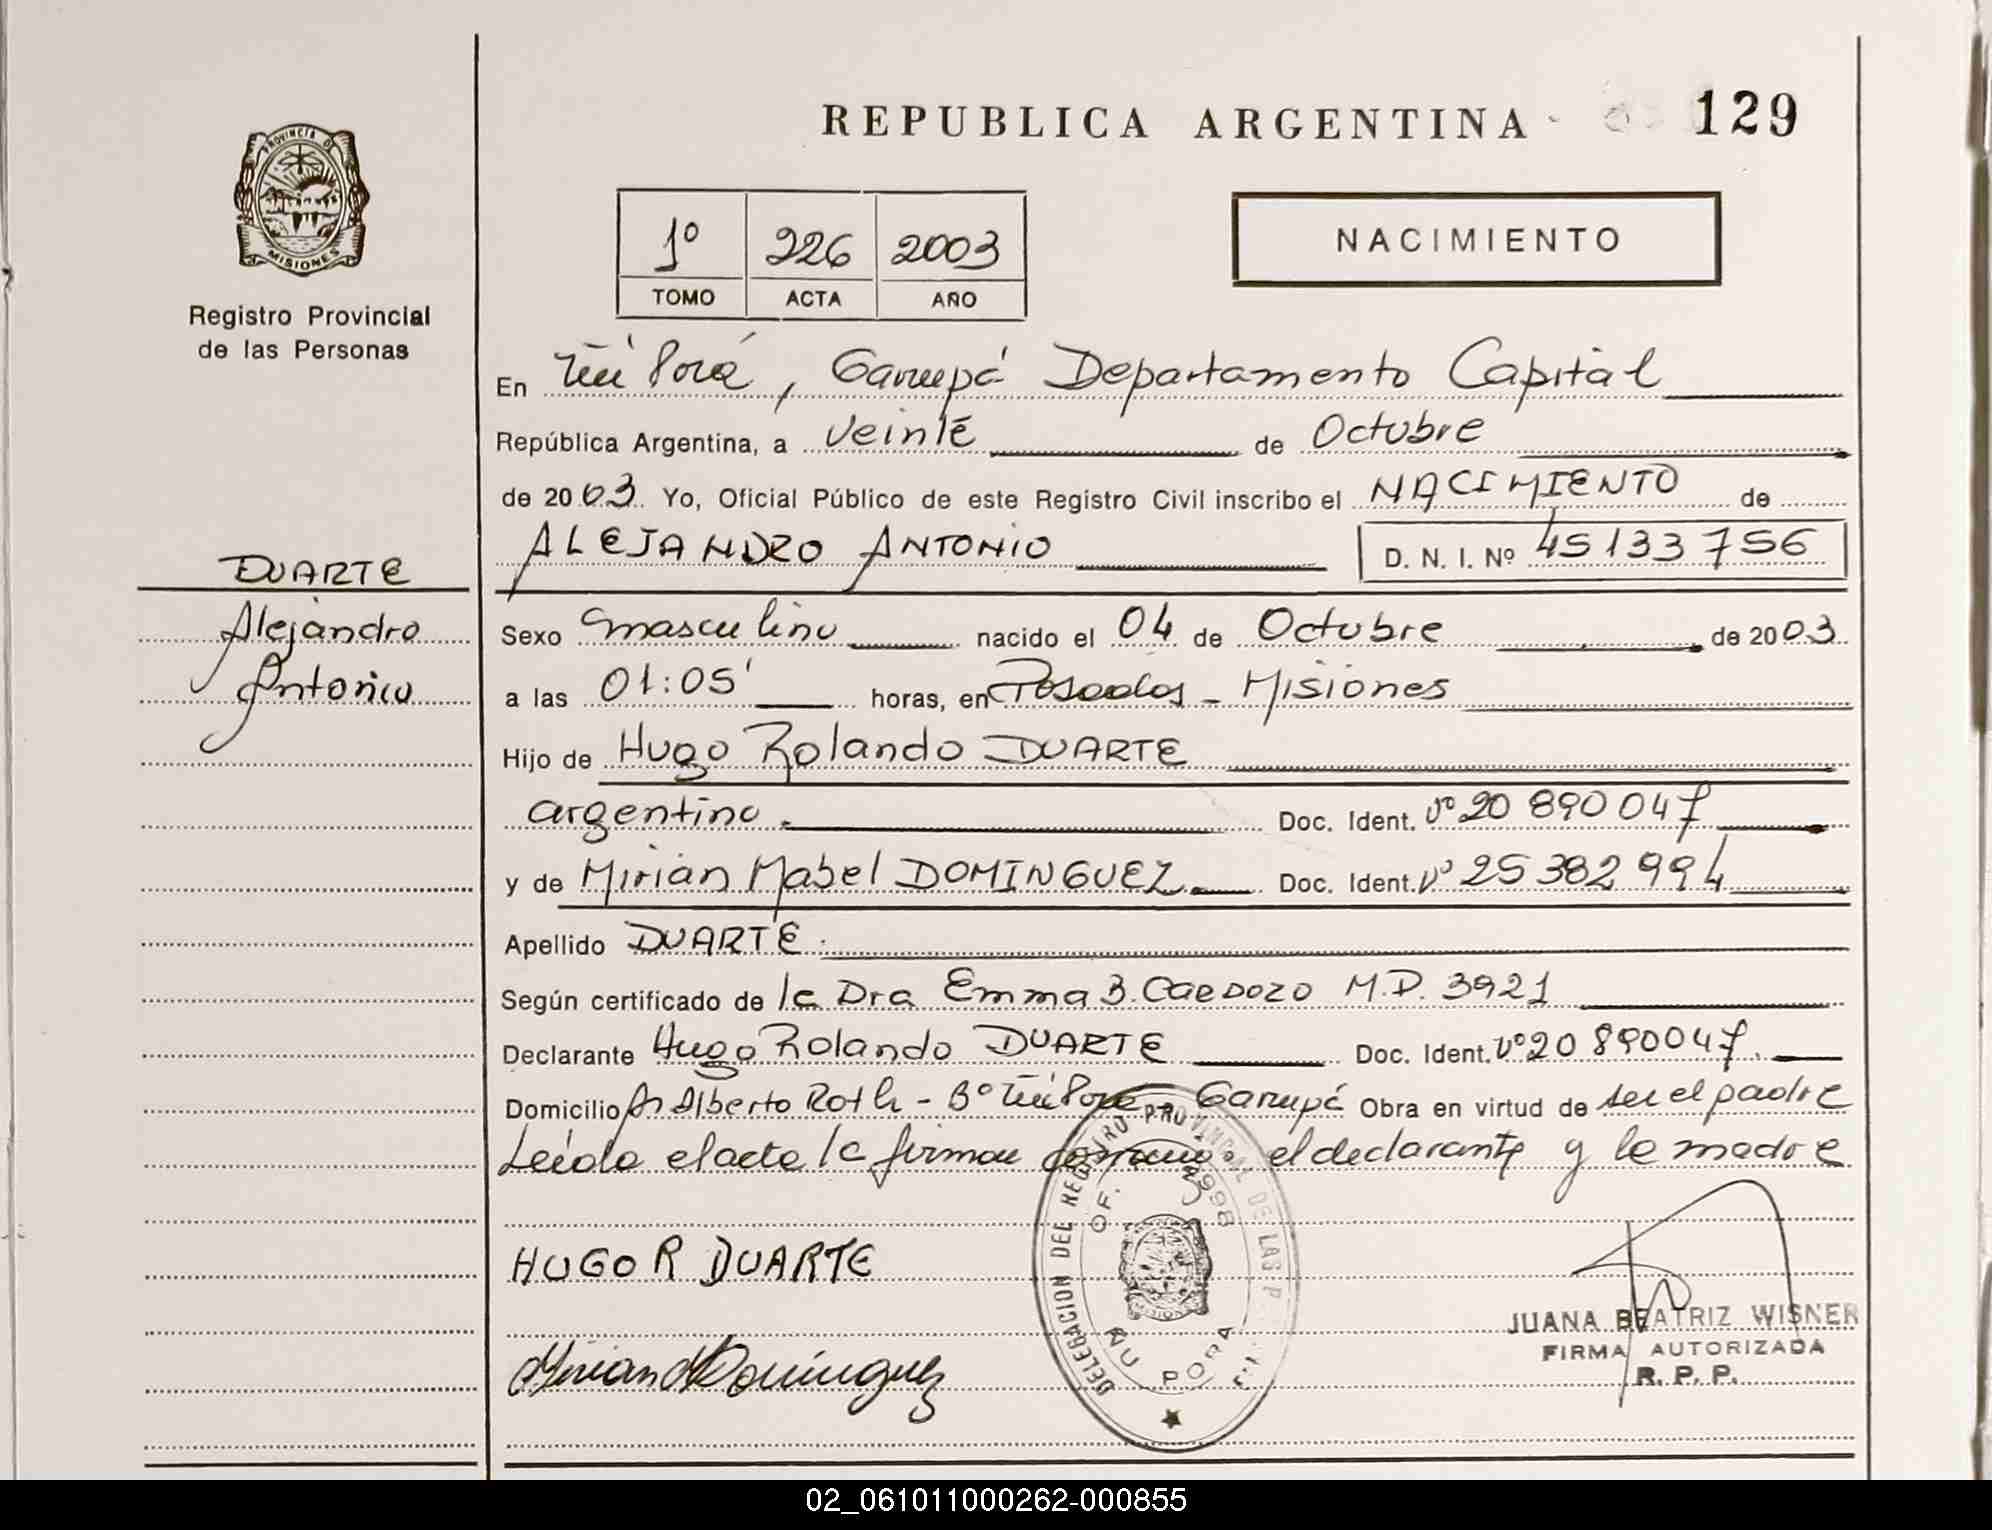 REPUBLICA ARGENTINA 129
PROVINCIA DE MISIONES
Registro Provincial
de las Personas
1º 226 2003
TOMO ACTA AÑO
NACIMIENTO
En Ñu Porá, Garupá Departamento Capital
República Argentina, a veinte de Octubre
de 2003. Yo, Oficial Público de este Registro Civil inscribo el NACIMIENTO de
ALEJANDRO ANTONIO D. N. I. Nº 45133756
DUARTE
Alejandro
Antonio
Sexo masculino nacido el 04 de Octubre de 2003
a las 01:05' horas, en Posadas - Misiones
Hijo de Hugo Rolando DUARTE
argentino. Doc. Ident. Nº 20 890 047
y de Mirian Mabel DOMINGUEZ. Doc. Ident. Nº 25 382 994
Apellido DUARTE.
Según certificado de la Dra Emma B. CARDOZO M.P. 3921
Declarante Hugo Rolando DUARTE Doc. Ident. Nº 20 890047.
Domicilio Alberto Roth - Bº Ñu Porá - Garupá Obra en virtud de ser el padre
Leída el acta la firman el declarante y la madre
HUGO R DUARTE
Mirian M Dominguez
DELEGACION DEL REGISTRO PROVINCIAL DE LAS
OF. 998
MISIONES
ÑU PORA
JUANA BEATRIZ WISNER
FIRMA AUTORIZADA
R. P. P.
02_061011000262-000855